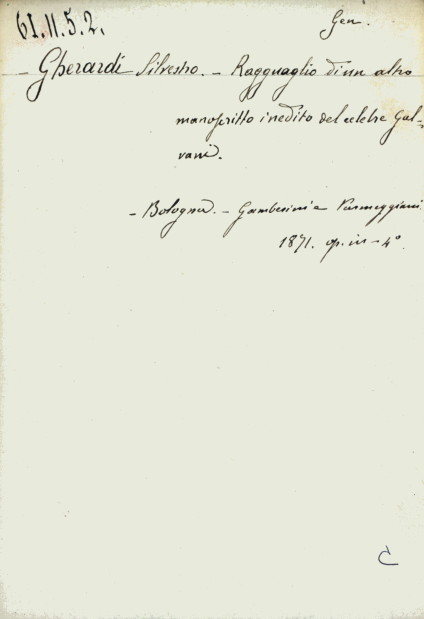 61.11.5.2.
Gen.
Gherardi Silvestro. — Ragguaglio di un altro
manoscritto inedito del celebre Gal-
vani.
— Bologna. — Gamberini e Parmeggiani
1871. op. in-4°
C